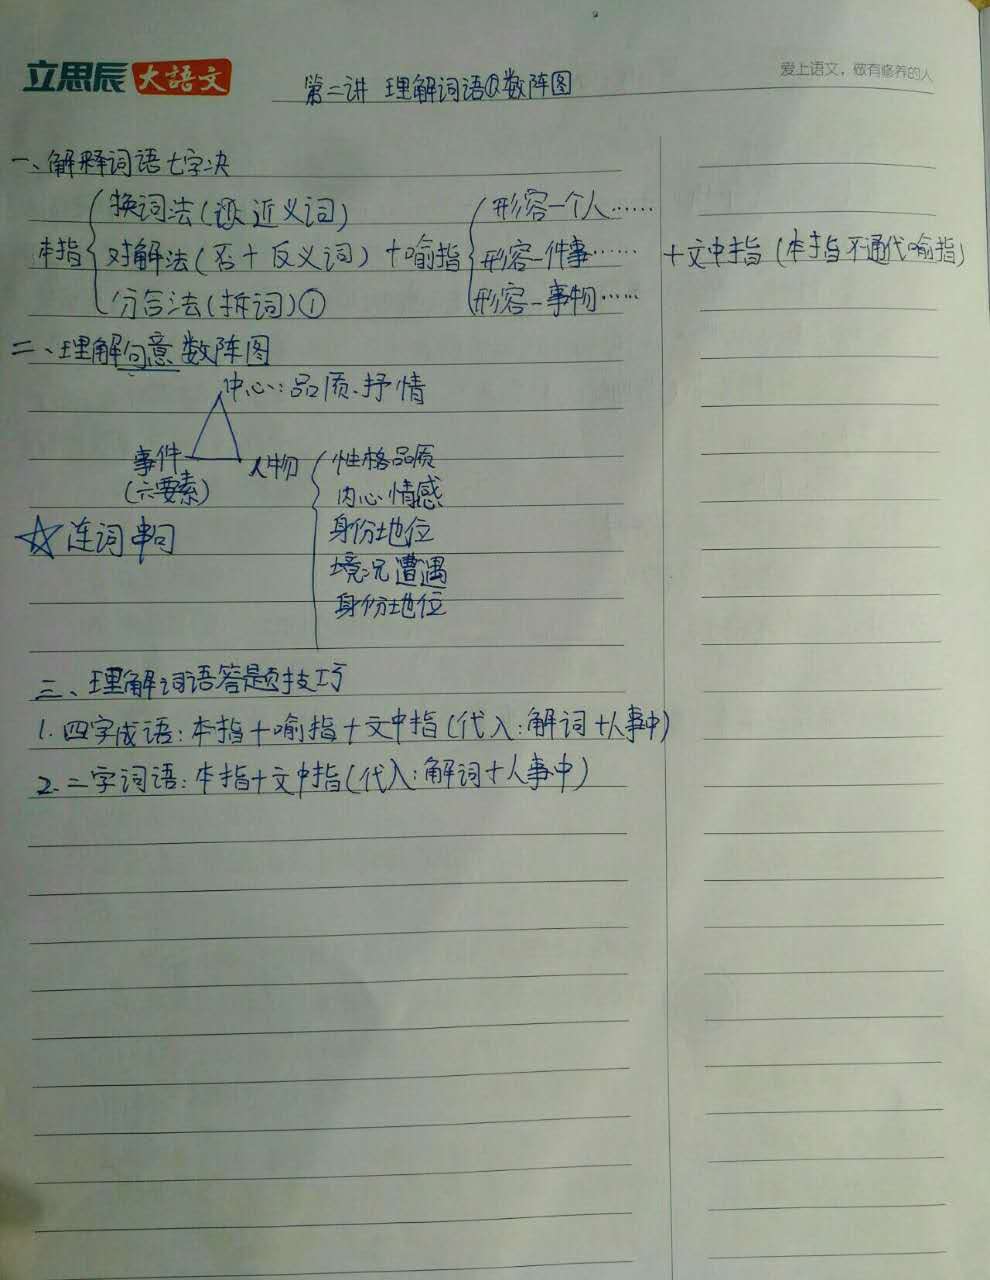 立思辰 大語文
爱上语文，做有修养的人
第二讲 理解词语①数阵图
一、解释词语七字决
本指
换词法(近义词)
对解法(否+反义词)
分合法(拆词)①
+喻指
形容一个人……
形容一件事……
形容一事物……
+文中指(本指不通代喻指)
二、理解句意数阵图
中心:品质、抒情
事件
(六要素)
人物
性格品质
内心情感
身份地位
境况遭遇
身份地位
☆连词串句
三、理解词语答题技巧
1.四字成语:本指+喻指+文中指(代入:解词+人事中)
2.二字词语:本指+文中指(代入:解词+人事中)